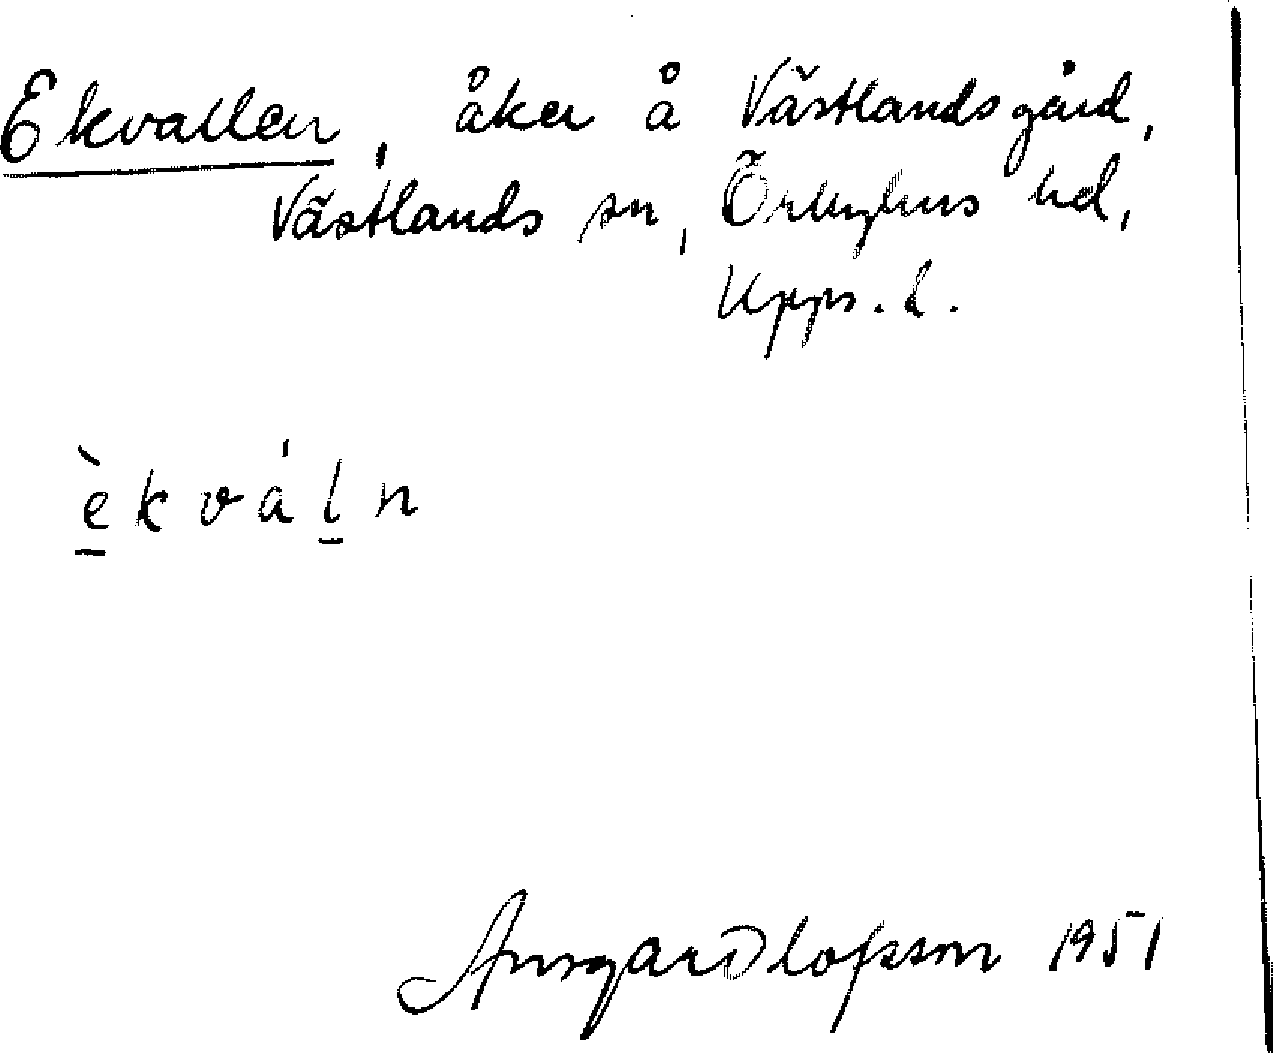 Ekvallen, åker å Västlandsgård,
Västlands sn, Örbyhus hd,
Upps. l.
èkváln
Ansgar Olofsson 1951